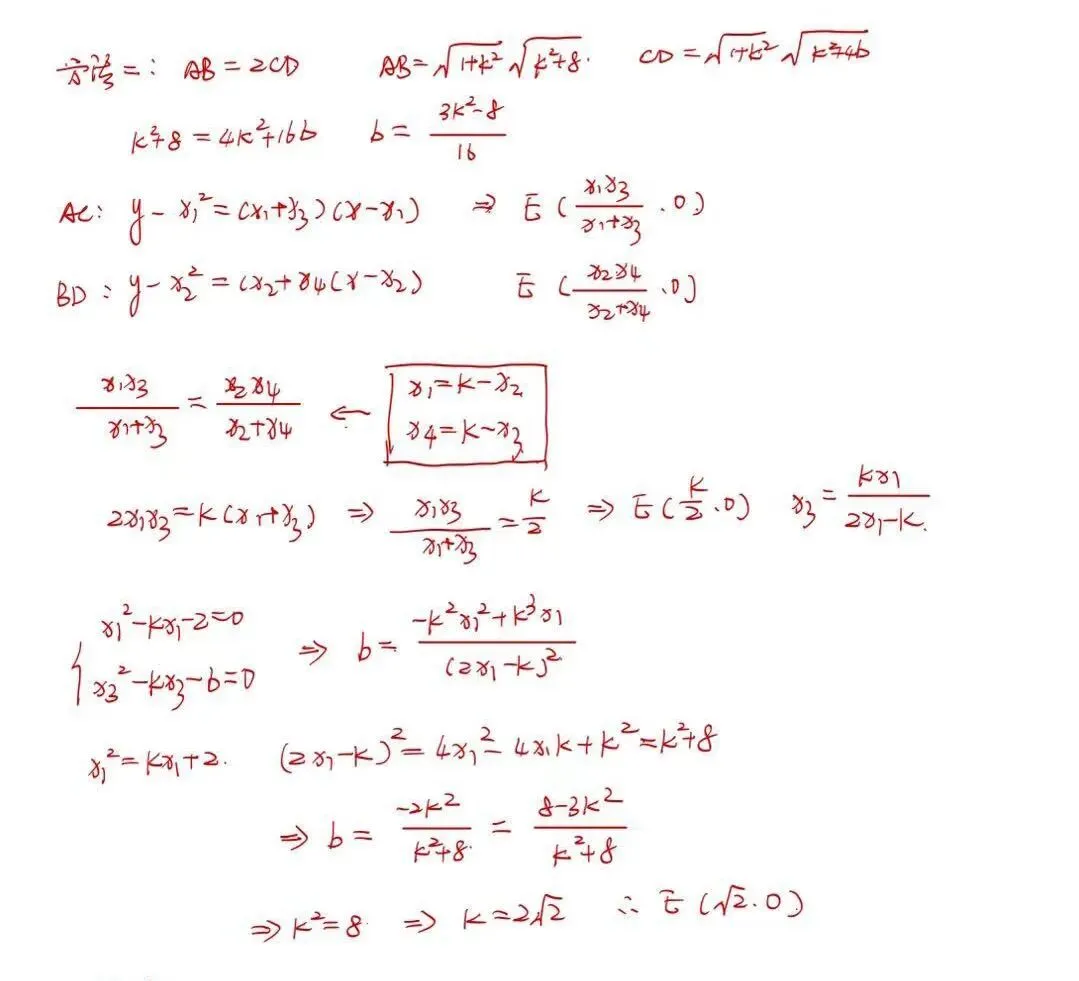 方法二: AB=2CD AB=√(1+k²)√(k²+8). CD=√(1+k²)√(k²+4b)
k²+8=4k²+16b b=(3k²-8)/16
AC: y-x₁²=(x₁+x₃)(x-x₁) ⇒ E(x₁x₃/(x₁+x₃).0)
BD: y-x₂²=(x₂+x₄(x-x₂) E(x₂x₄/(x₂+x₄).0)
x₁x₃/(x₁+x₃)=x₂x₄/(x₂+x₄) ← x₁=k-x₂
x₄=k-x₃
2x₁x₃=k(x₁+x₃) ⇒ x₁x₃/(x₁+x₃)=k/2 ⇒ E(k/2.0) x₃=kx₁/(2x₁-k).
{x₁²-kx₁-2=0 ⇒ b=(-k²x₁²+k³x₁)/(2x₁-k)²
x₃²-kx₃-b=0
x₁²=kx₁+2. (2x₁-k)²=4x₁²-4x₁k+k²=k²+8
⇒ b=-2k²/(k²+8)=(8-3k²)/(k²+8)
⇒ k²=8 ⇒ k=2√2 ∴ E(√2.0)